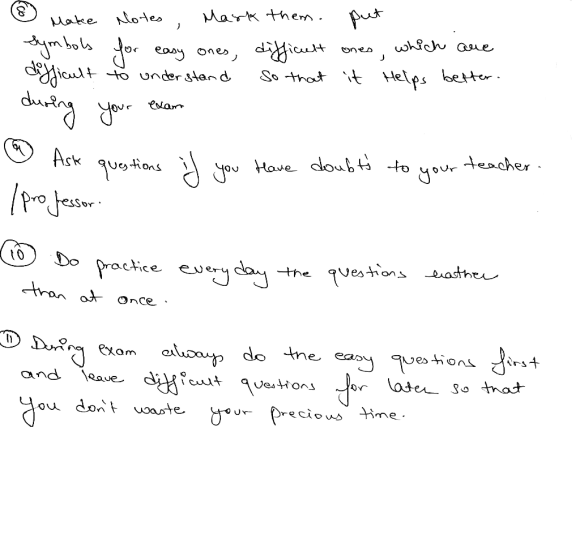 ⑧ Make Notes, Mark them. put
symbols for easy ones, difficult ones, which are
difficult to understand so that it Helps better.
during your exam
⑨ Ask questions if you Have doubts to your teacher.
/professor.
⑩ Do practice everyday the questions rather
than at once.
⑪ During exam always do the easy questions first
and leave difficult questions for later so that
you don't waste your precious time.